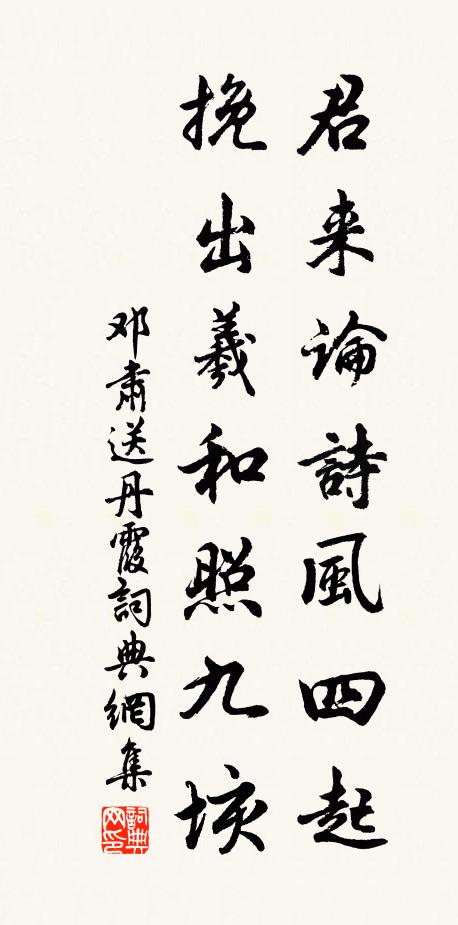 君来論詩風四起
挽出羲和照九垓
邓肅送丹霞詞典網集
詞典网印